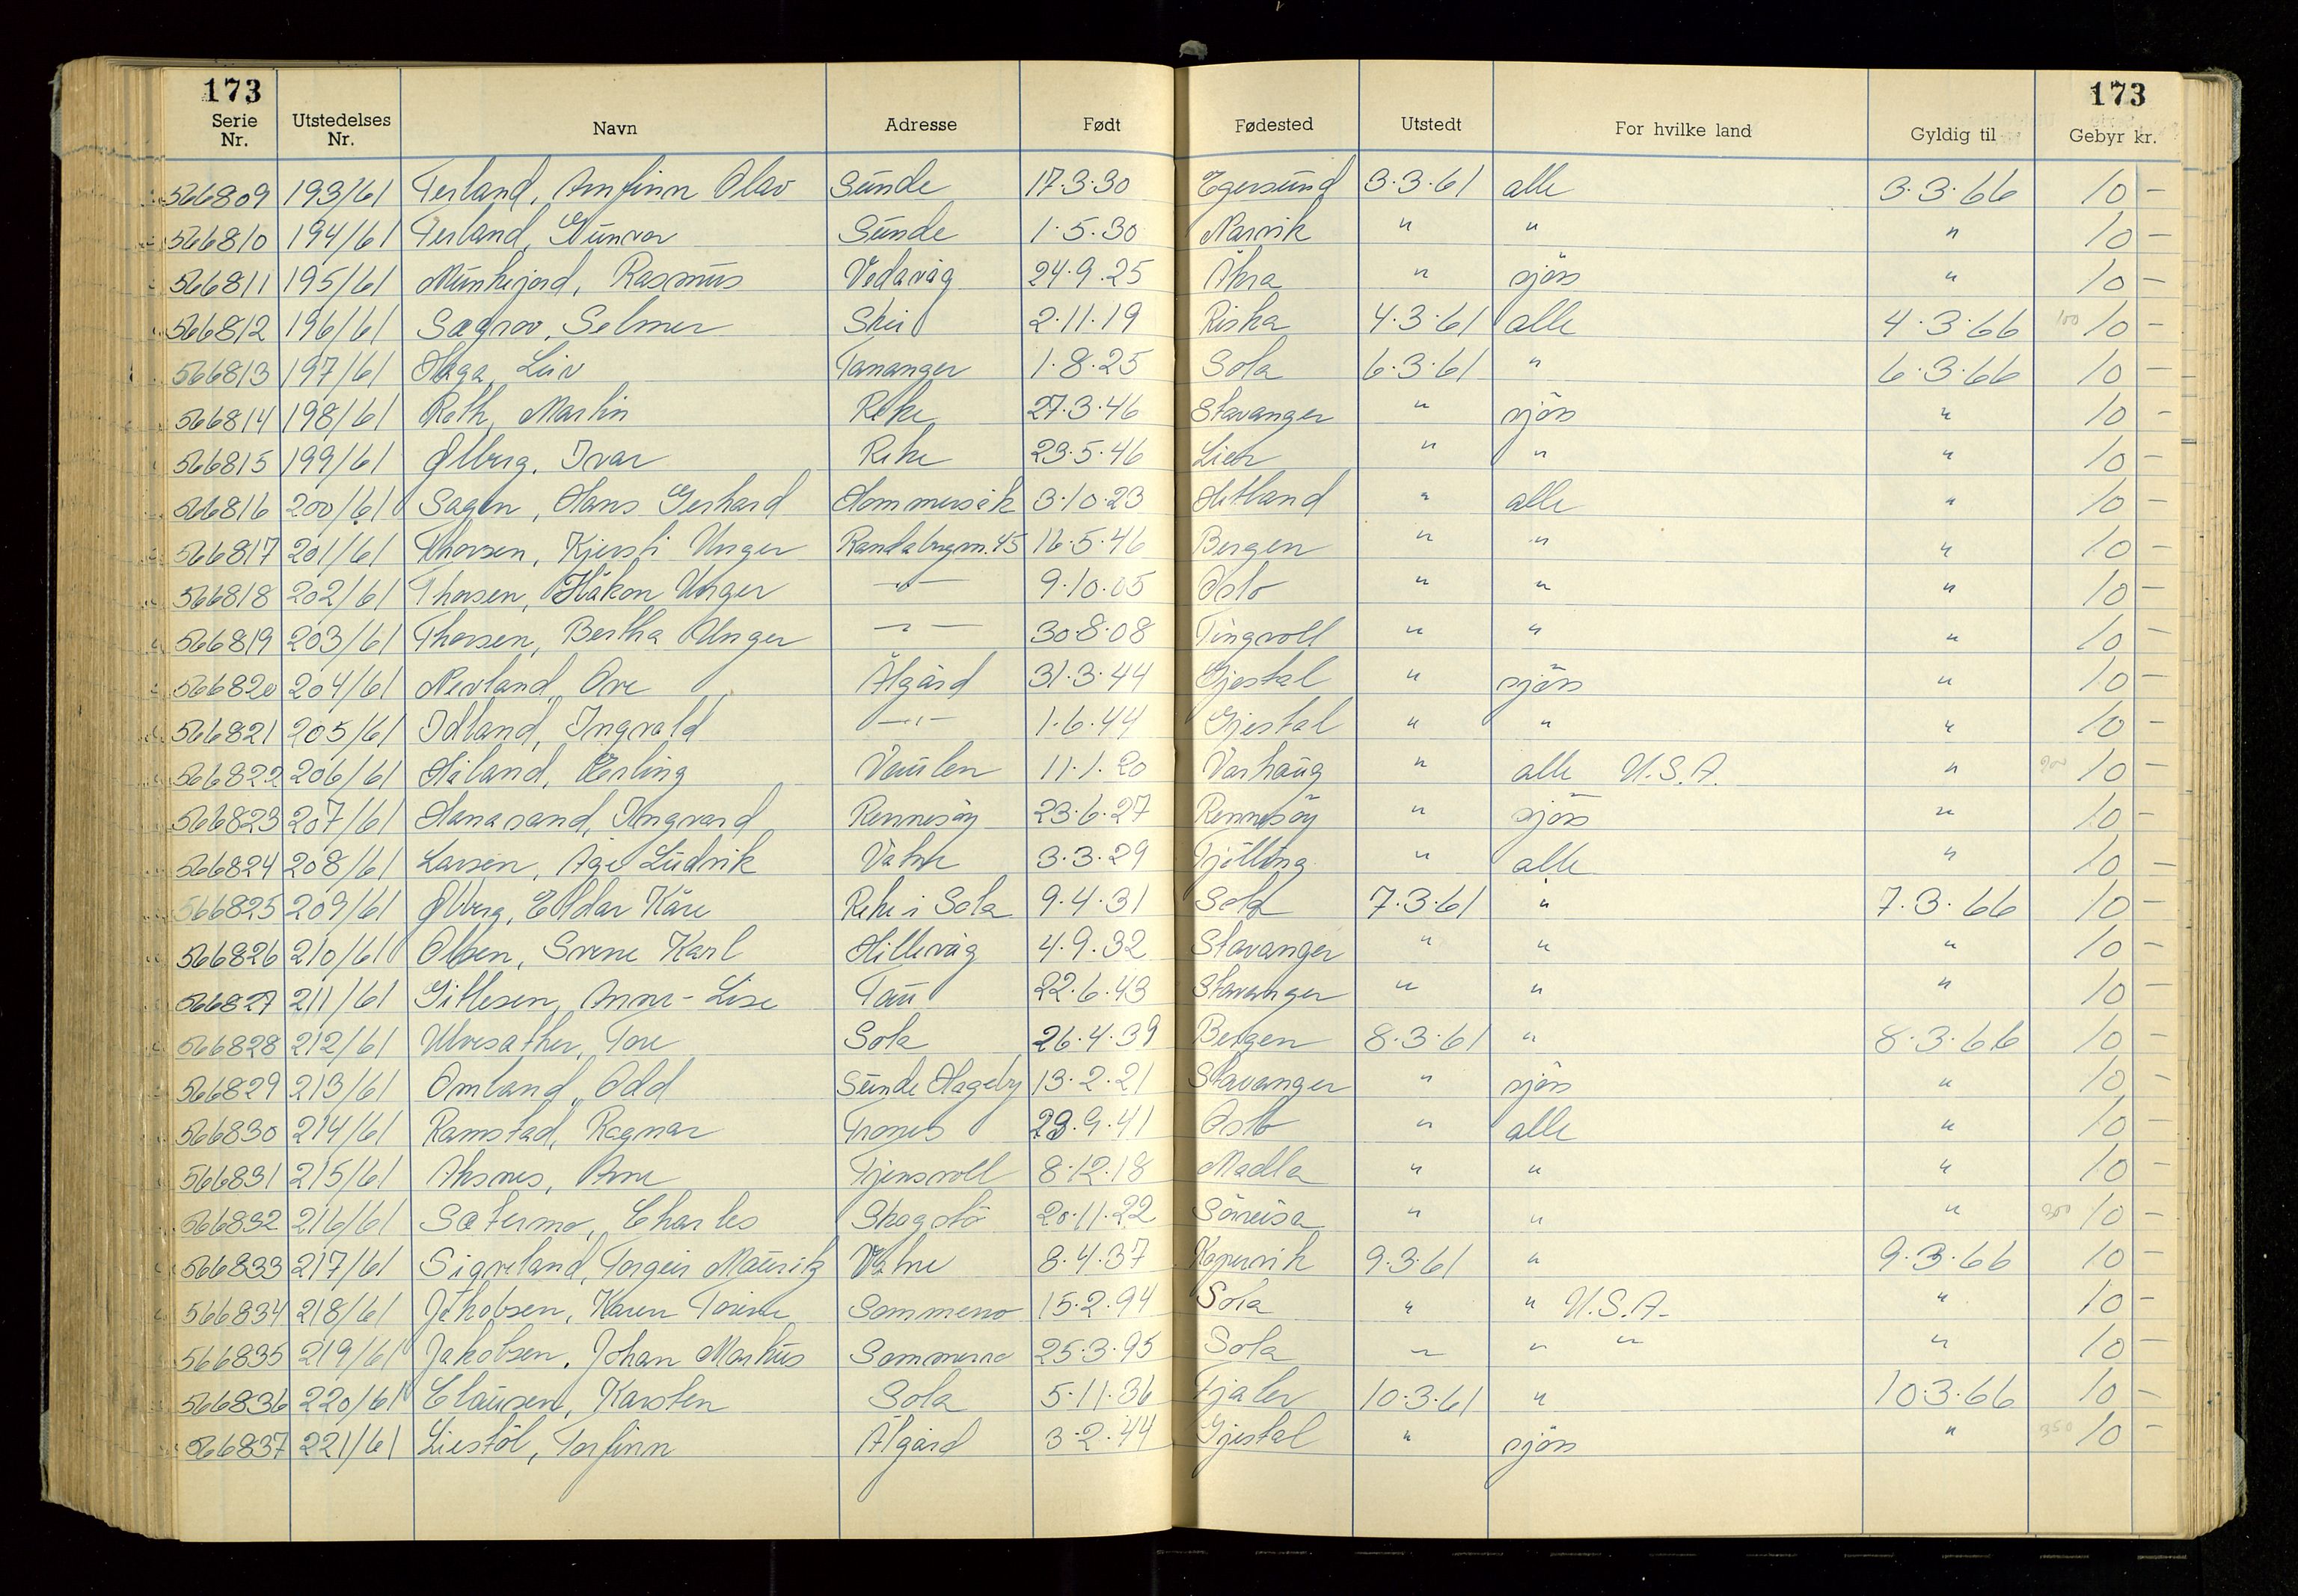 173 173
Serie Nr. Utstedelses Nr. Navn Adresse Født Fødested Utstedt For hvilke land Gyldig til Gebyr kr.
566809 193/61 Terland, Arnfinn Olav Sunde 17.3.30 Egersund 3.3.61 alle 3.3.66 10 –
566810 194/61 Terland, Gunvor Sunde 1.5.30 Narvik " " " 10 –
566811 195/61 Munkejord, Rasmus Vedavåg 24.9.25 Åkra " sjøs " 10 –
566812 196/61 Sægrov, Selmer Skei 2.11.19 Riska 4.3.61 alle 4.3.66 100 10 –
566813 197/61 Haga, Leiv Tananger 1.8.25 Sola 6.3.61 " 6.3.66 10 –
566814 198/61 Roth, Martin Reke 27.3.46 Stavanger " sjøs " 10 –
566815 199/61 Ølberg, Ivar Reke 23.5.46 Lier " " " 10 –
566816 200/61 Sagen, Hans Gerhard Hommersåk 3.10.23 Hetland " alle " 10 –
566817 201/61 Thorsen, Kjersti Unger Randabygm. 45 16.5.46 Bergen " " " 10 –
566818 202/61 Thorsen, Håkon Unger –"– 9.10.05 Oslo " " " 10 –
566819 203/61 Thorsen, Bertha Unger –"– 30.8.08 Tingvoll " " " 10 –
566820 204/61 Nevland, Ove Ålgård 31.3.44 Gjestal " sjøs " 10 –
566821 205/61 Idland, Ingvald –"– 1.6.44 Gjestal " " " 10 –
566822 206/61 Håland, Erling Vaulen 11.1.20 Varhaug " alle U.S.A. " 200 10 –
566823 207/61 Hanasand, Ingvard Rennesøy 23.6.27 Rennesøy " sjøs " 10 –
566824 208/61 Larsen, Åge Ludvik Vatne 3.3.29 Tjølling " alle " 10 –
566825 209/61 Ølberg, Eldar Kåre Reke i Sola 9.4.31 Sola 7.3.61 " 7.3.66 10 –
566826 210/61 Olsen, Svene Karl Hillevåg 4.9.32 Stavanger " " " 10 –
566827 211/61 Gitlesen, Anne-Lise Tau 22.6.43 Stavanger " " " 10 –
566828 212/61 Ulvesæther, Tore Sola 26.4.39 Bergen 8.3.61 " 8.3.66 10 –
566829 213/61 Omland, Odd Sunde Hageby 13.2.21 Stavanger " sjøs " 10 –
566830 214/61 Ramstad, Ragnar Trones 29.9.41 Oslo " alle " 10 –
566831 215/61 Aksnes, Arne Tjensvoll 8.12.18 Madla " " " 10 –
566832 216/61 Sætermo, Charles Skogstø 20.11.22 Sørreisa " " " 300 10 –
566833 217/61 Sigveland, Torgeir Mauritz Vatne 8.4.37 Kopervik 9.3.61 " 9.3.66 10 –
566834 218/61 Jakobsen, Karen Torine Sømmevo 15.2.94 Sola " " U.S.A. " 10 –
566835 219/61 Jakobsen, Johan Markus Sømmevo 25.3.95 Sola " " " " 10 –
566836 220/61 Clausen, Karsten Sola 5.11.36 Fjaler 10.3.61 " 10.3.66 10 –
566837 221/61 Liestøl, Torfinn Ålgård 3.2.44 Gjestal " sjøs " 350 10 –